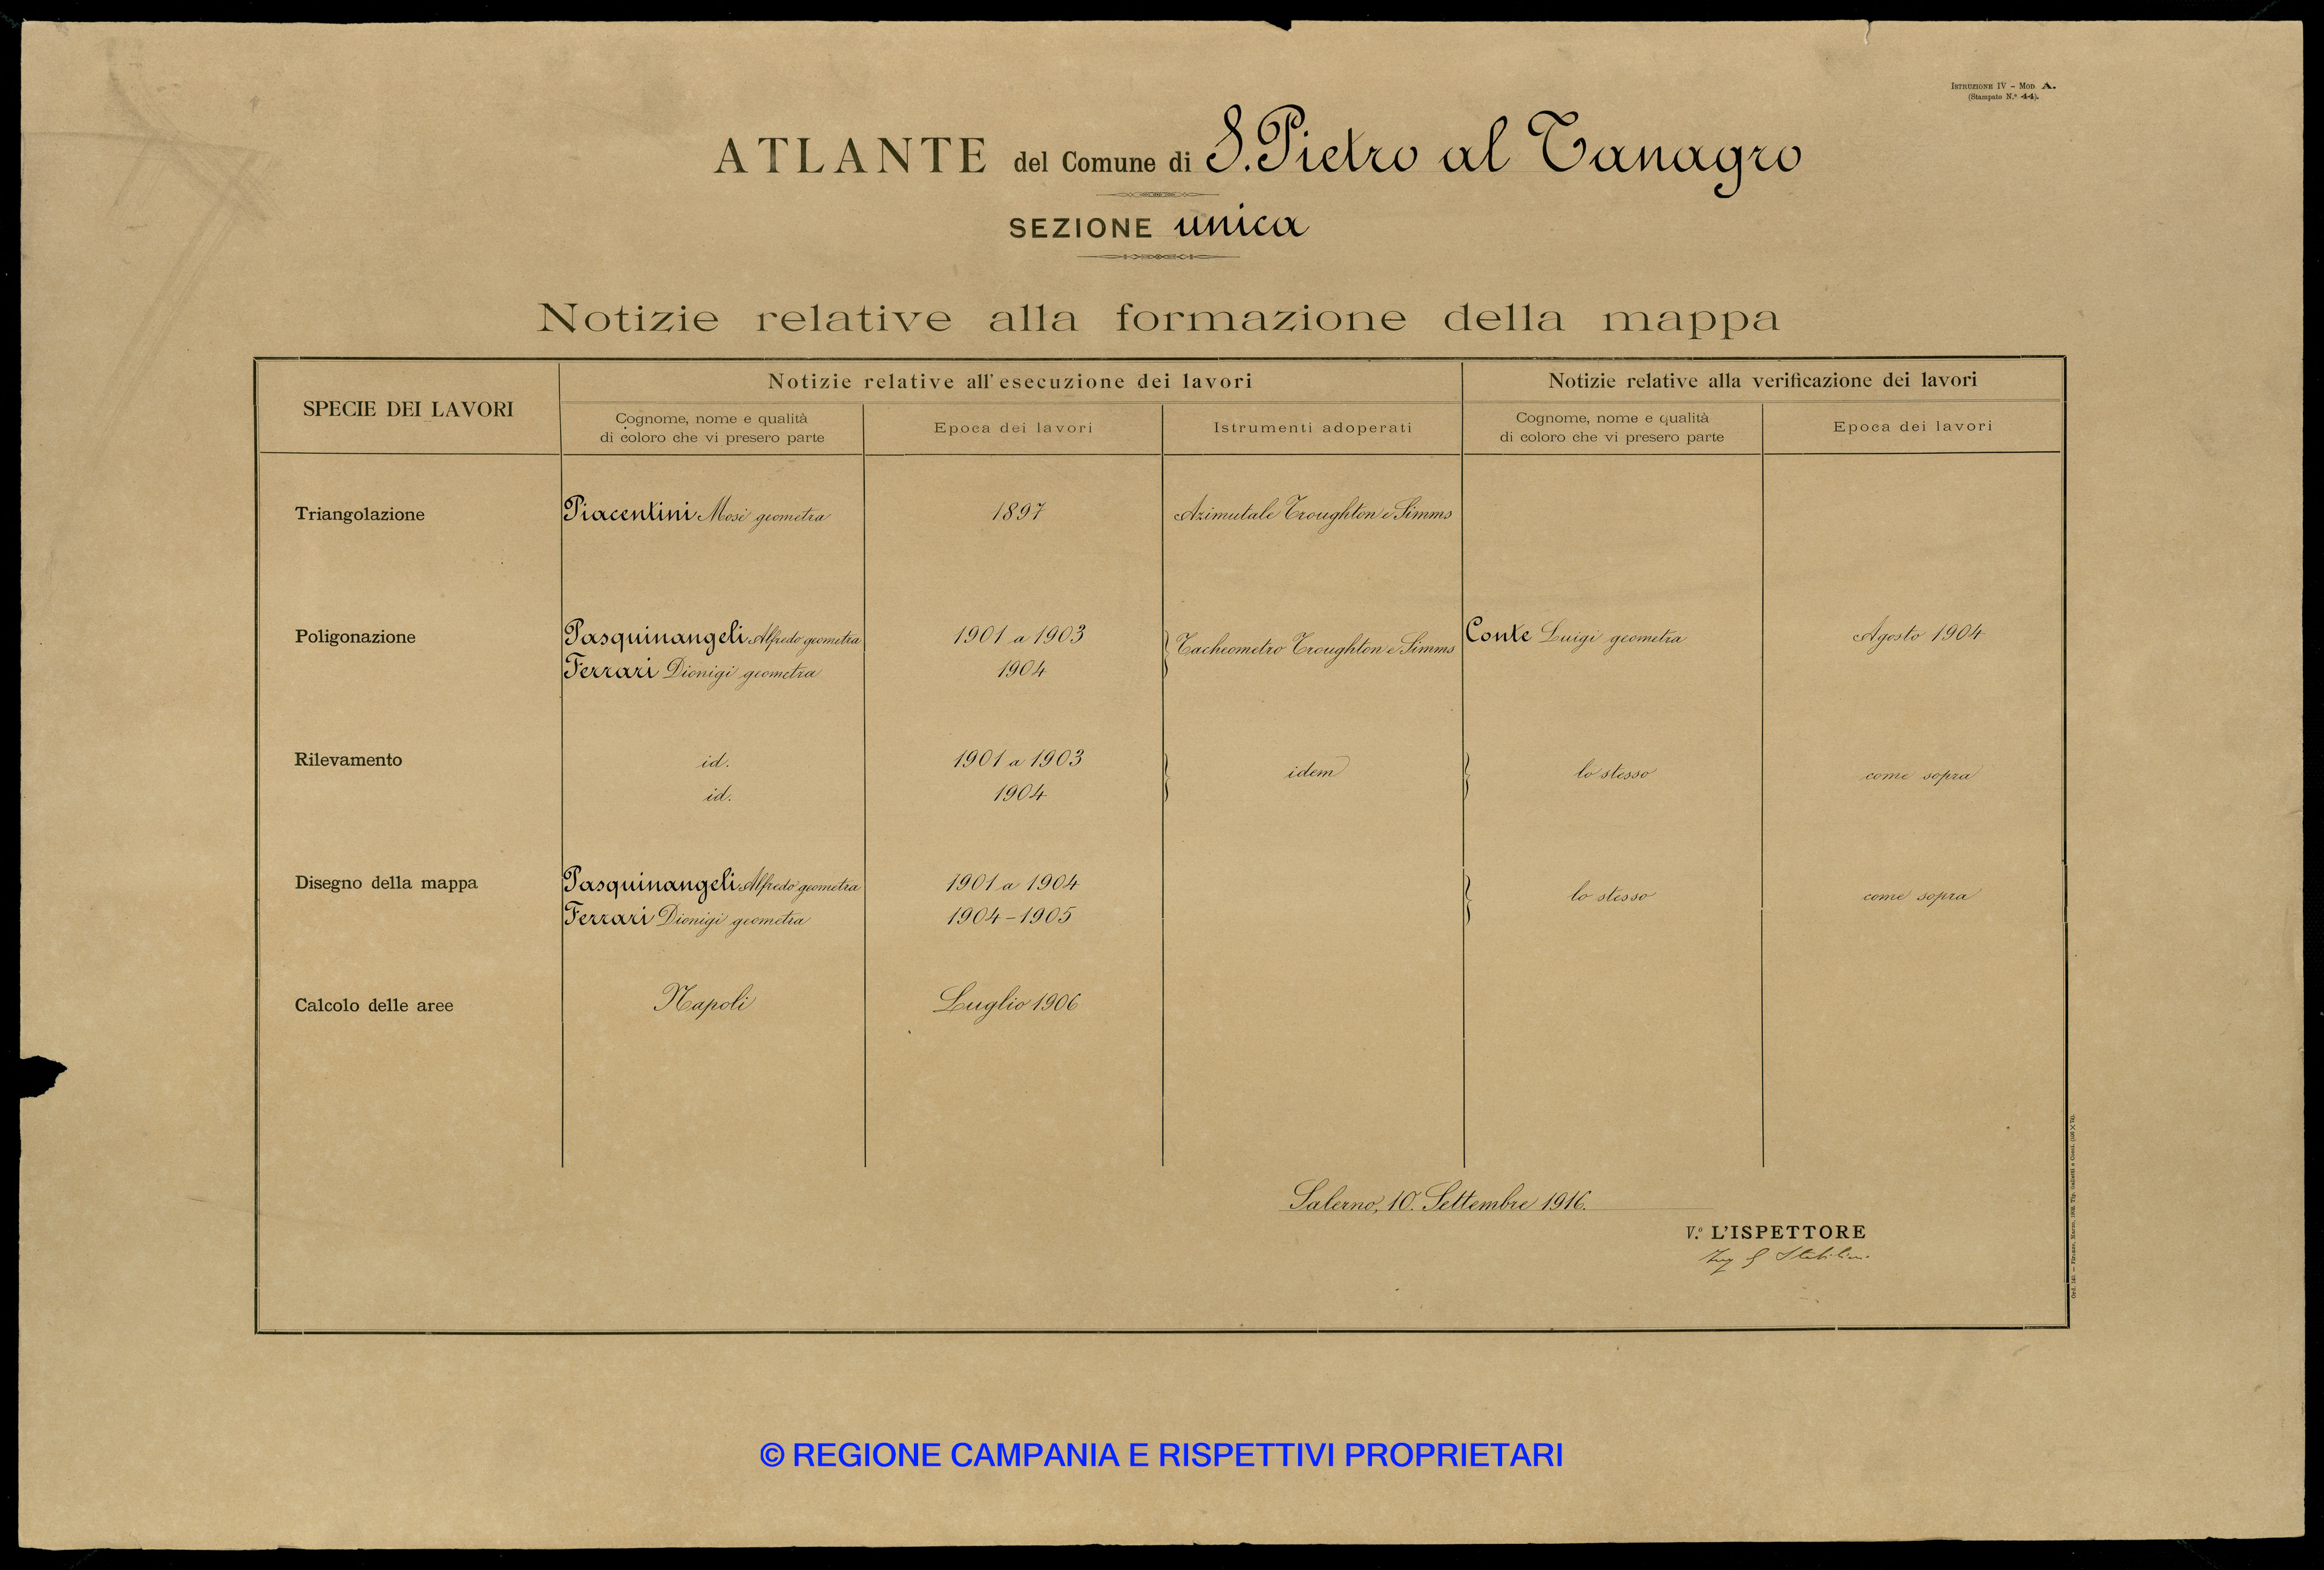 ISTRUZIONE IV - MOD. A.
(Stampato N.° 44).
ATLANTE del Comune di S. Pietro al Tanagro
SEZIONE unica
Notizie relative alla formazione della mappa
SPECIE DEI LAVORI
Notizie relative all'esecuzione dei lavori
Notizie relative alla verificazione dei lavori
Cognome, nome e qualità
di coloro che vi presero parte
Epoca dei lavori
Istrumenti adoperati
Cognome, nome e qualità
di coloro che vi presero parte
Epoca dei lavori
Triangolazione Piacentini Mosè geometra 1897 Azimutale Troughton e Simms
Poligonazione Pasquinangeli Alfredo geometra 1901 a 1903 Tacheometro Troughton e Simms Conte Luigi geometra Agosto 1904
Ferrari Dionigi geometra 1904
Rilevamento id. 1901 a 1903 idem lo stesso come sopra
id. 1904
Disegno della mappa Pasquinangeli Alfredo geometra 1901 a 1904 lo stesso come sopra
Ferrari Dionigi geometra 1904-1905
Calcolo delle aree Napoli Luglio 1906
Salerno, 10. Settembre 1916.
V.° L'ISPETTORE
© REGIONE CAMPANIA E RISPETTIVI PROPRIETARI